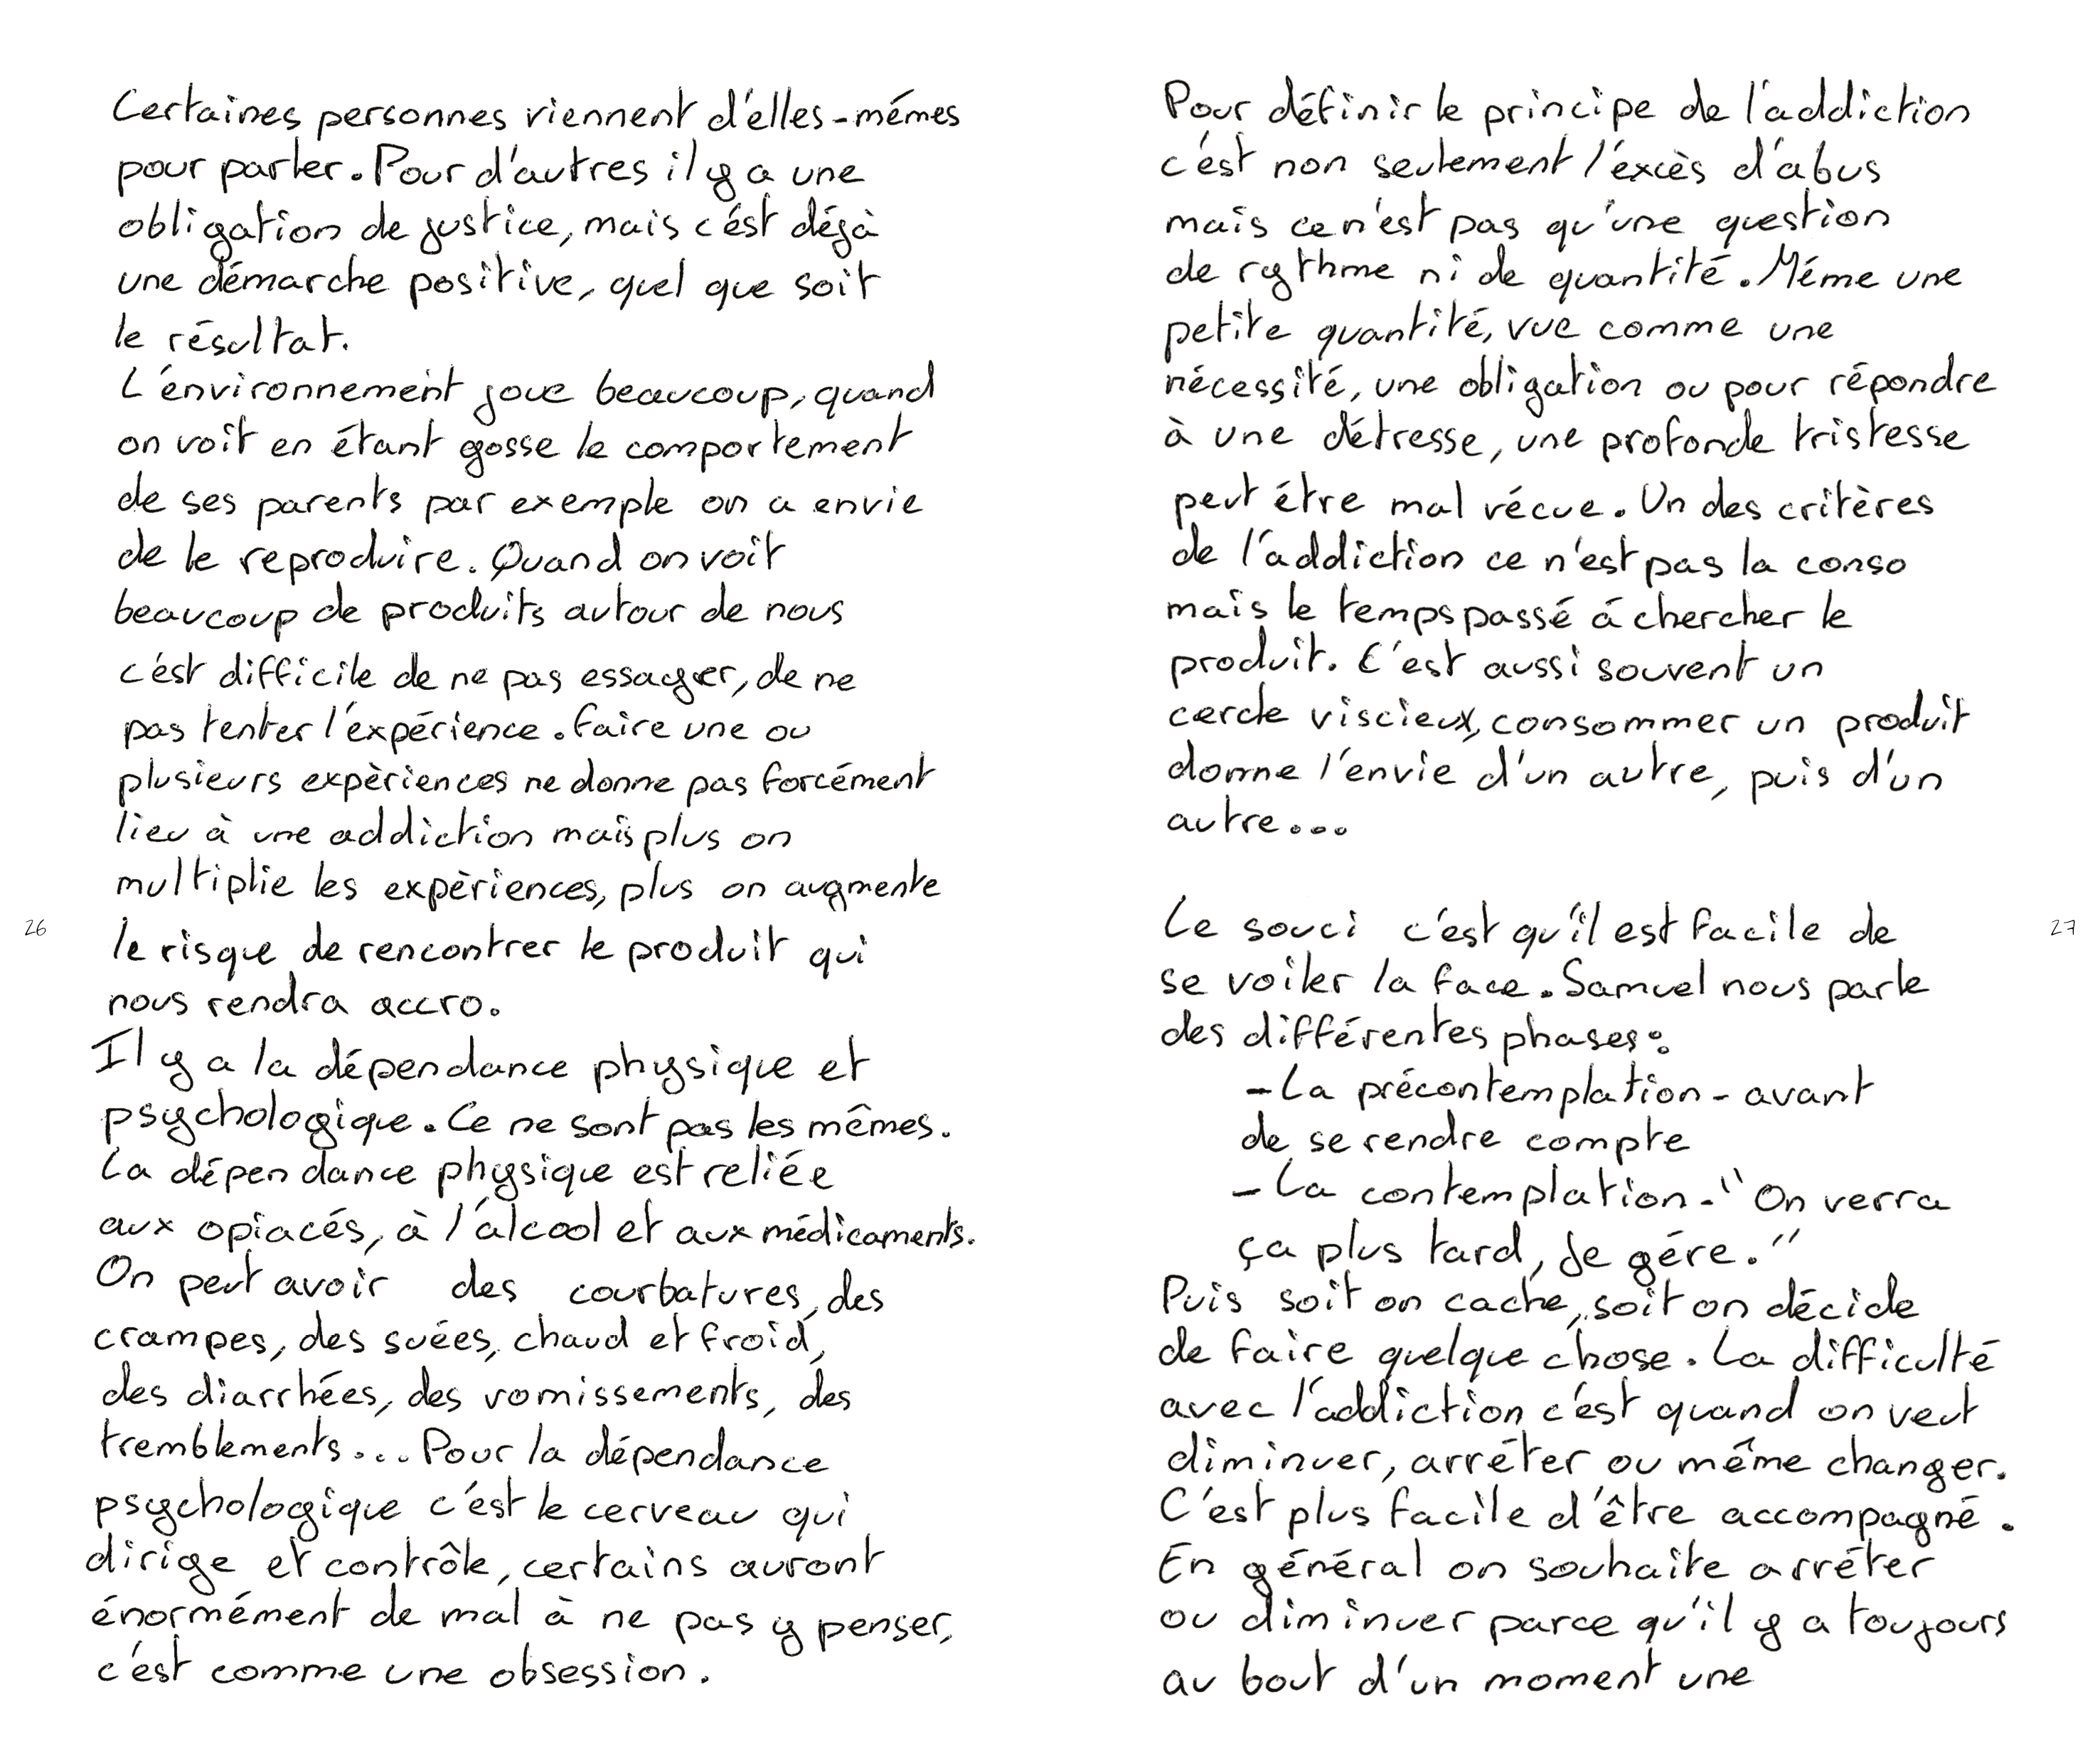 Certaines personnes viennent d'elles-mémes
pour parler. Pour d'autres il y a une
obligation de justice, mais c'est déjà
une démarche positive, quel que soit
le résultat.
L'environnement joue beaucoup, quand
on voit en étant gosse le comportement
de ses parents par exemple on a envie
de le reproduire. Quand on voit
beaucoup de produits autour de nous
c'est difficile de ne pas essayer, de ne
pas tenter l'expérience. Faire une ou
plusieurs expèriences ne donne pas forcément
lieu à une addiction mais plus on
multiplie les expèriences, plus on augmente
le risque de rencontrer le produit qui
nous rendra accro.
Il y a la dépendance physique et
psychologique. Ce ne sont pas les mêmes.
La dépendance physique est reliée
aux opiacés, à l'alcool et aux médicaments.
On peut avoir des courbatures, des
crampes, des suées, chaud et froid,
des diarrhées, des vomissements, des
tremblements... Pour la dépendance
psychologique c'est le cerveau qui
dirige et contrôle, certains auront
énormément de mal à ne pas y penser,
c'est comme une obsession.
26
Pour définir le principe de l'addiction
c'est non seulement l'éxcès d'abus
mais ce n'est pas qu'une question
de rythme ni de quantité. Méme une
petite quantité, vue comme une
nécessité, une obligation ou pour répondre
à une détresse, une profonde tristesse
peut étre mal vécue. Un des critères
de l'addiction ce n'est pas la conso
mais le temps passé á chercher le
produit. C'est aussi souvent un
cercle viscieux, consommer un produit
donne l'envie d'un autre, puis d'un
autre...
Le souci c'est qu'il est facile de
se voiler la face. Samuel nous parle
des différentes phases:
- La précontemplation - avant
de se rendre compte
- La contemplation - "On verra
ça plus tard, je gére."
Puis soit on cache, soit on décide
de faire quelque chose. La difficulté
avec l'addiction c'est quand on veut
diminuer, arréter ou même changer.
C'est plus facile d'être accompagné.
En général on souhaite arréter
ou diminuer parce qu'il y a toujours
au bout d'un moment une
27